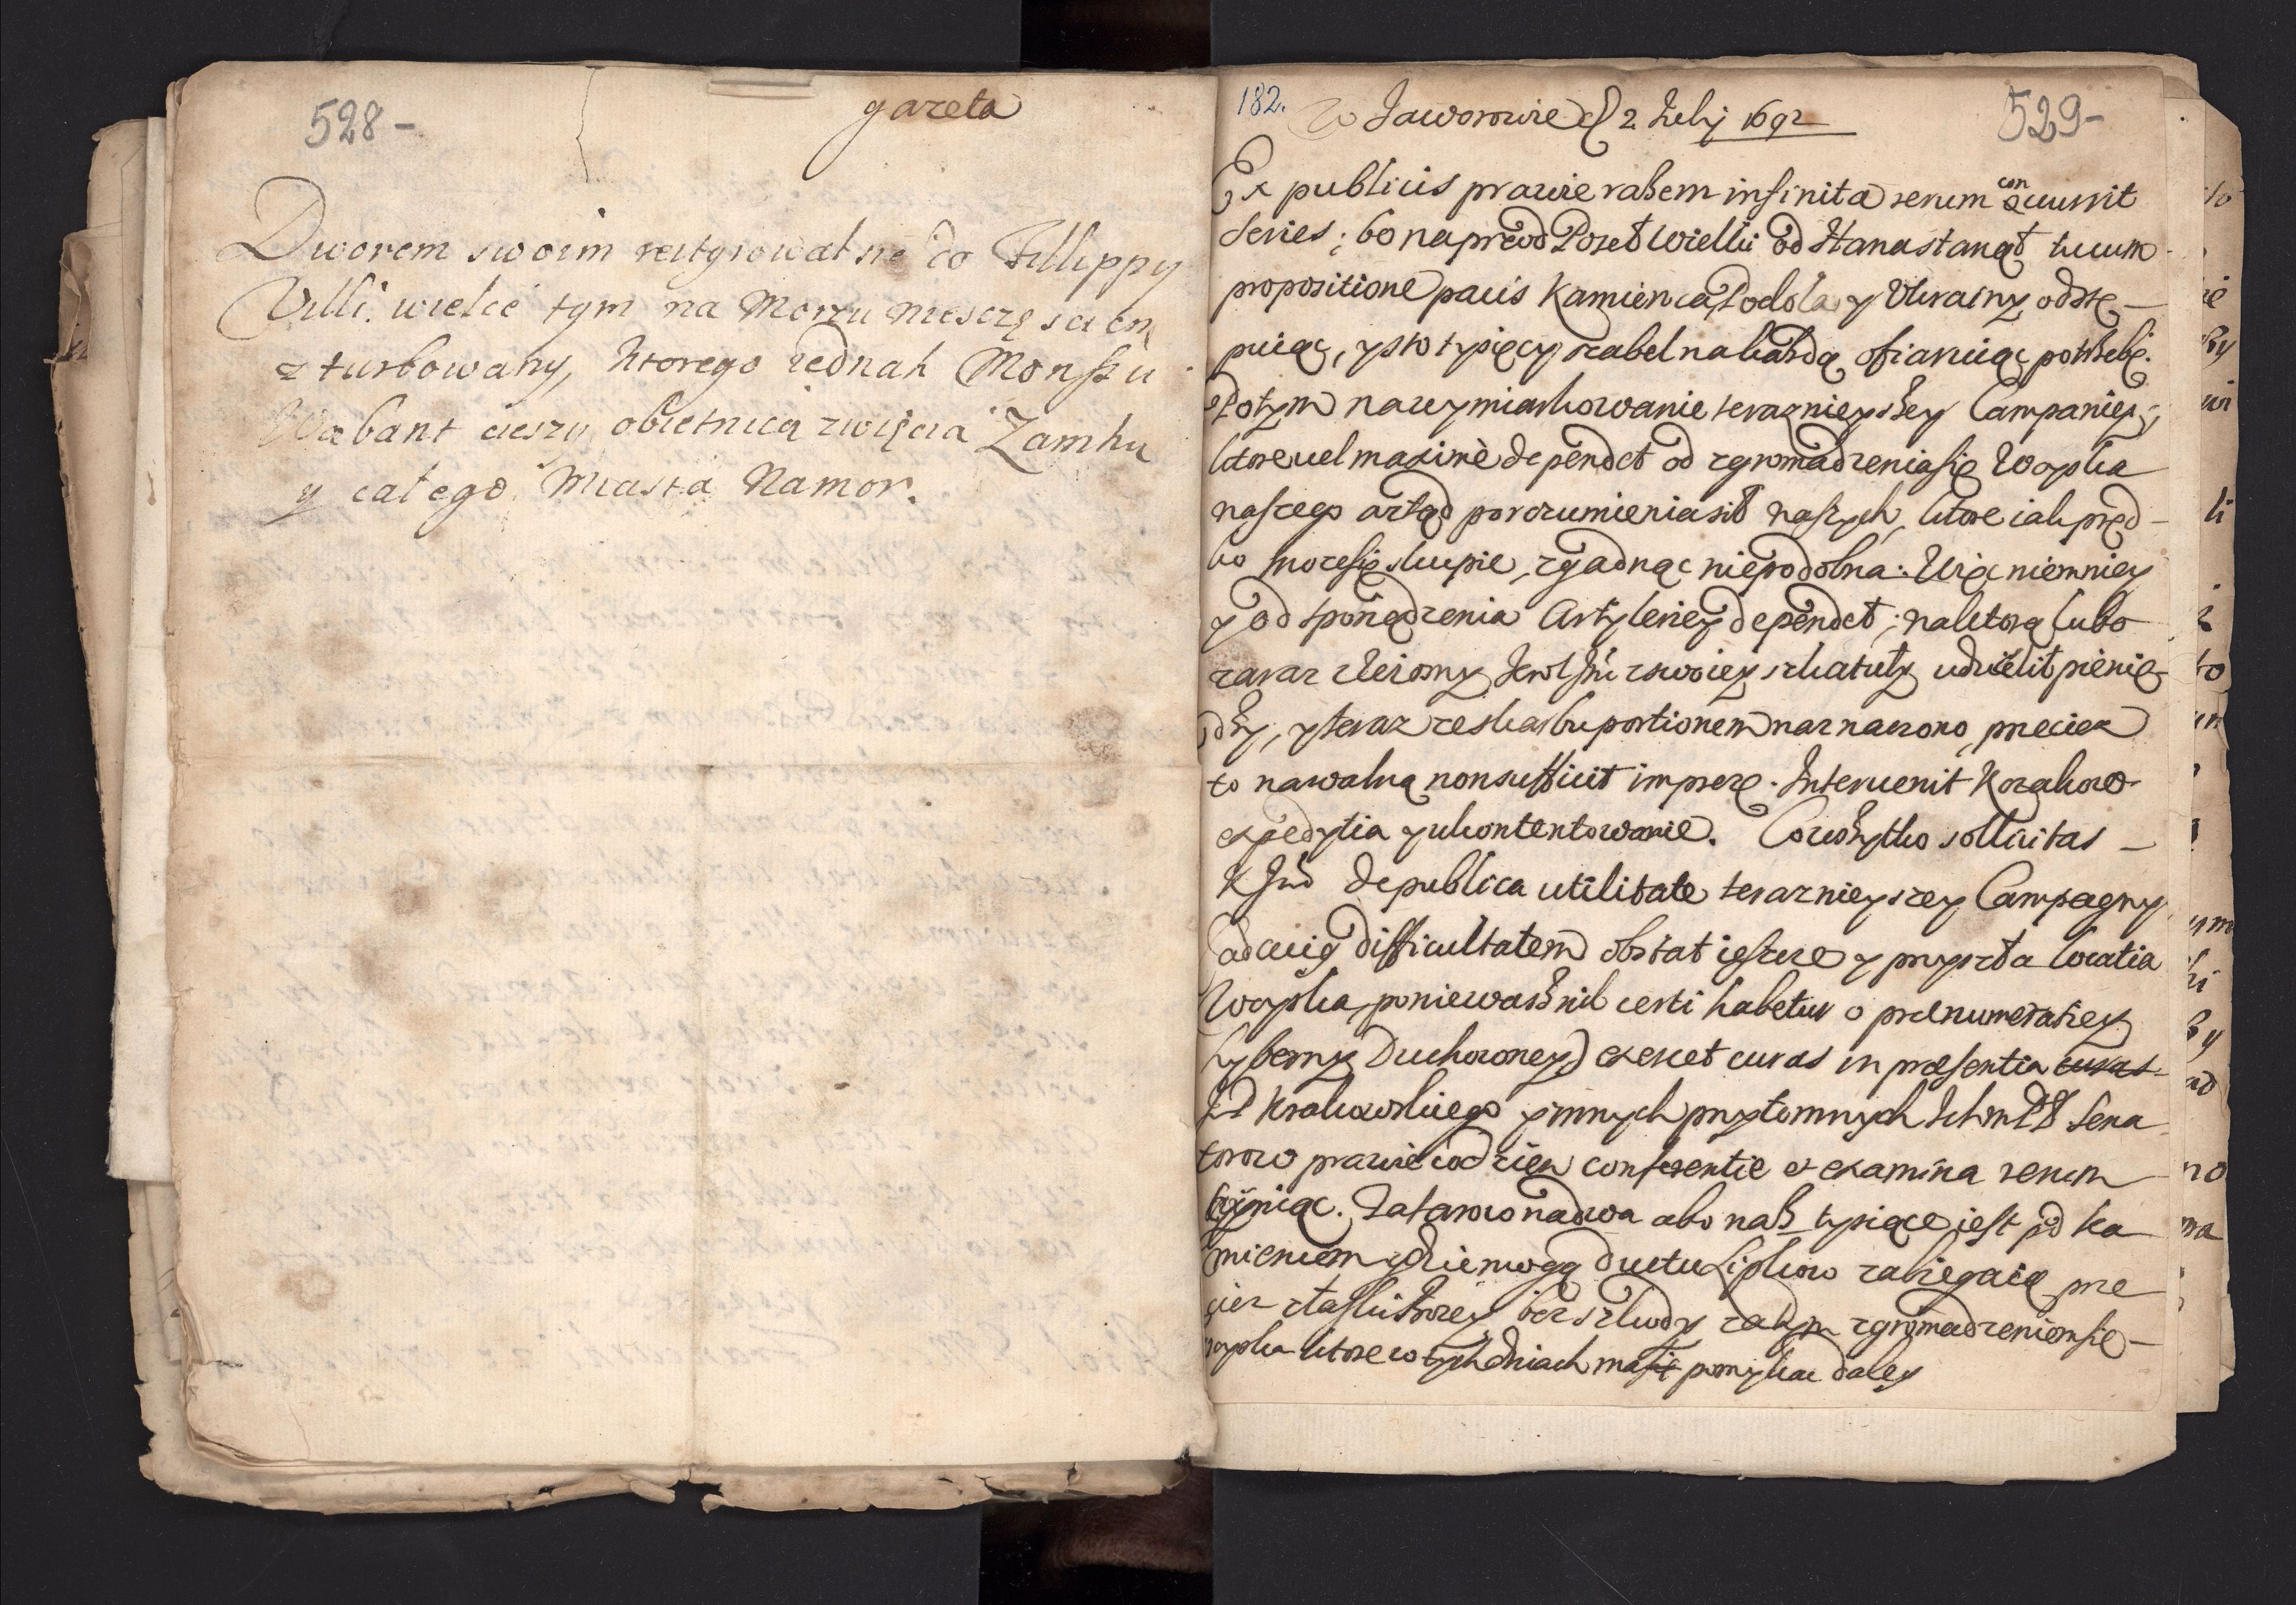 528-
gazeta
Dworem swoim retyrował się do Fillippy
Villi. wielce tym na Morzu nieszczęsciem
zturbowany, ktorego iednak Monssu
Wobant cieszy obietnicą zwięcia Zamku
y całego Miasta Namor.
182.
w Jaworowie d 2 July 1692
529-
Ex publicis prawie razem infinita rerum concurrit
series; bo naprzod Poseł wielki od Hana stanął tu cum
propositione pacis Kamienca Podola y Ukrainy odstę-
puiąc, y sto tysięcy szabel na kazdą ofiaruiąc potrzebę.
Potym na wymiarkowanie terazniejszey Campaniey,
ktore vel maxime dependet od zgromadzenia się Woyska
naszego a ztąd porozumienia sił naszych, ktore iak pręd-
ko moze się skupic, zgadnąc niepodobna. Więc niemniey
y od sporządzenia Artyleriey dependet; na ktorą lubo
zaraz Krol Jmc z swoiey szkatuły udzielił pienię-
dzy, y teraz ze skarbu portionem naznaczono, przeciez
to nawalną non sufficit imprezę. Intervenit Kozakow
expedytia y ukontentowanie. Co wszytko sollicitas
K Jmc de publica utilitate terazniejszey Campagny
ad cuią difficultatem obstat ieszcze y przyszła locatia
Woyska, poniewasz nil certi habetur o praenumeratiey
hyberny Duchowney) exercet curas in praesentia curas
JP Krakowskiego y innych przytomnych Ichm PP Sena
torow prawie co dzien conferentie et examina rerum
czyniąc. Tatarow na dwa abo na 3 tysiące iest pod Ka
miencem gdzie mogą ductu Lipkow zabiegaią prze
ciez z łaski Bozey bez szkody za tym zgromadzeniem się
woyska ktore w tych dniach ma się pomykac daley